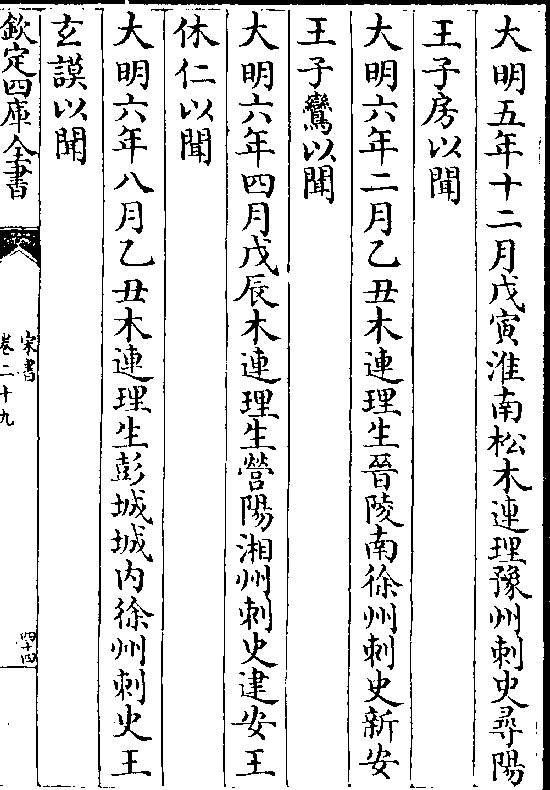 大明五年十二月戊寅淮南松木連理豫州刺史尋陽
王子房以聞
大明六年二月乙丑木連理生晉陵南徐州刺史新安
王子鸞以聞
大明六年四月戊辰木連理生營陽湘州刺史建安王
休仁以聞
大明六年八月乙丑木連理生彭城城内徐州刺史王
玄謨以聞
欽定四庫全書
宋書
卷二十九
四十四